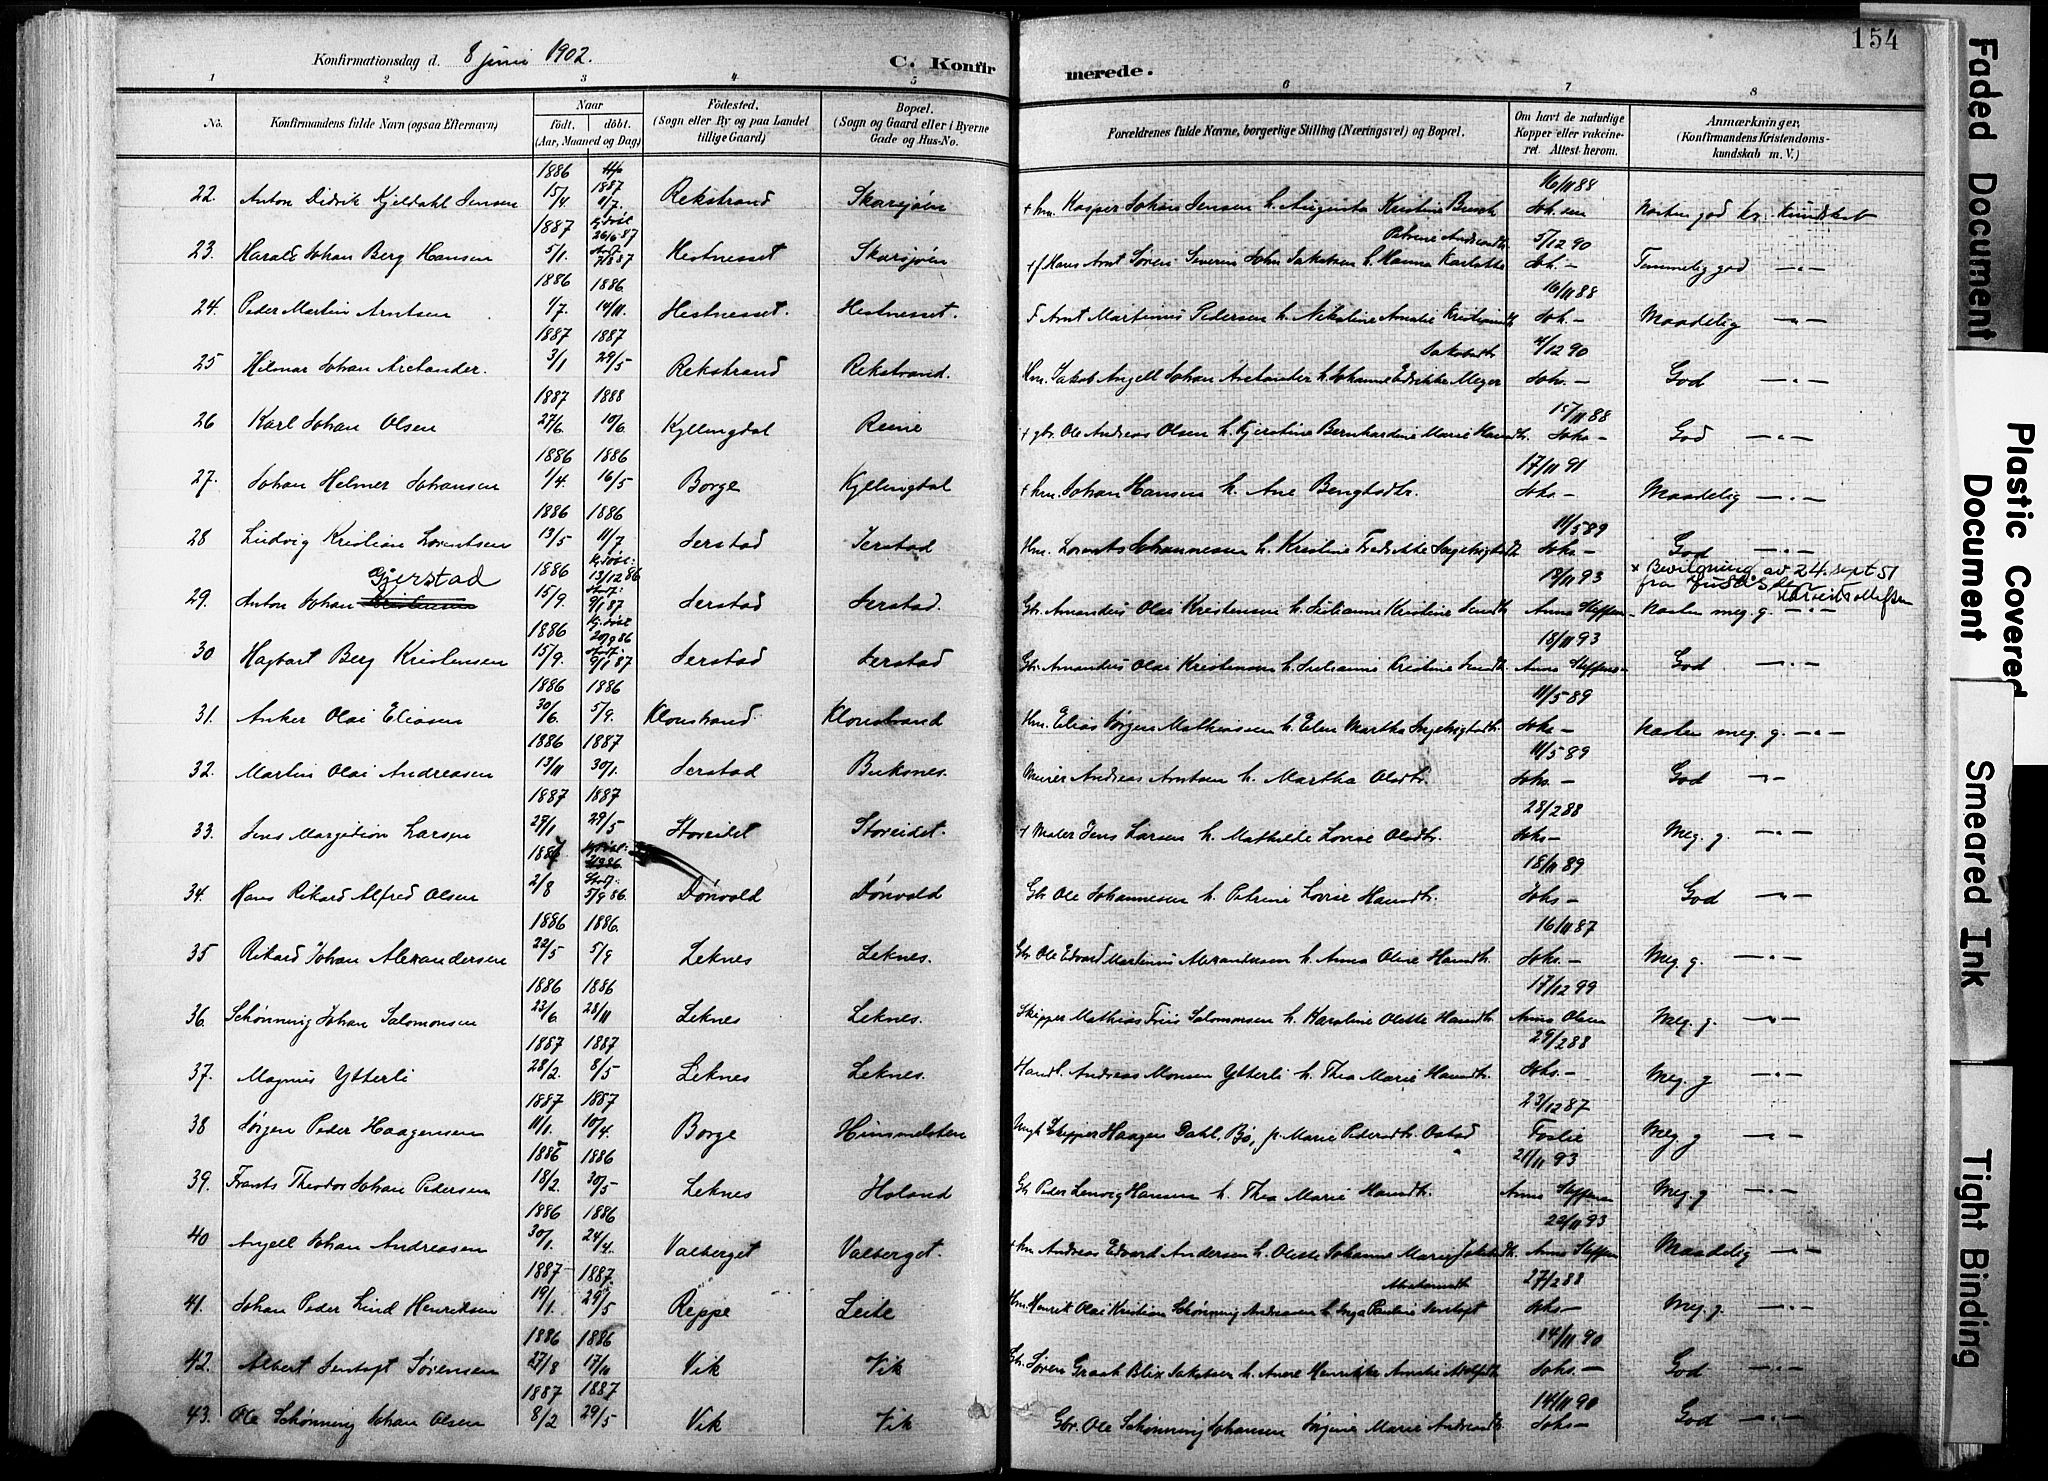 154
Konfirmationsdag d. 8 juni 1902.
C. Konfirmerede.
1 2 3 4 5 6 7 8
No.
Konfirmandens fulde Navn (ogsaa Efternavn)
Naar
Født. døbt.
(Aar, Maaned og Dag)
Fødested.
(Sogn eller By og paa Landet
tillige Gaard)
Bopæl.
(Sogn og Gaard eller i Byerne
Gade og Hus-No.
Forældrenes fulde Navne, borgerlige Stilling (Næringsvei) og Bopæl.
Om havt de naturlige
Kopper eller vakcine-
ret. Attest herom.
Anmærkninger,
(Konfirmandens Kristendoms-
kundskab m. V.)
22. Anton Didrik Kjeldahl Jensen 1886 15/4 1887 11/7. Rekstrand Skarsjøen + hm. Kasper Johan Jensen h. Augusta Kristine Busch 16/11 88 Joh.sen Næsten god kr. kundskab
23. Harald Johan Berg Hansen 1887 5/1. Hestnesset Skarsjøen Petrine Andreasdtr 5/12 90 Joh. — Temmelig god —"—
24. Peder Martin Arntsen 1886 1/7. 1886. 14/11. Hestnesset. Hestnesset. Arnt Martinius Pedersen h. Nikoline Amalie 16/11 88 Joh. — Maadelig —"—
25 Hilmar Johan Arctander. 1887 3/1 1887 29/5 Rekstrand Rekstrand. Hm. Jakob Angell Johan Arctander h. Johanne Meyer Jakobsdtr 4/12 90 Joh. — God —"—
26 Karl Johan Olsen 1887 27/6. 1888 10/6. Kyllingdal Reine Ole Andreas Olsen h. Kjerstine Bernhardine Marie Hansdtr. 15/11 88 Johs — God —"—
27. Johan Helmer Johansen 1886 1/4. 1886 16/5 Borge Kyllingdal + hm. Johan Hansen h. Ane Bengtsdtr. 17/11 91 Johs — Maadelig —"—
28 Ludvig Kristian Lorentsen 1886 13/5 1886 11/7 Jerstad Jerstad Hm. Lorents Johannessen h. Kristine 11/5 89 Johs — God —"—
29. Anton Johan Kristensen Gjerstad 1886 15/9. Kj.døbt: 13/12 86 Stadf: 9/1 87 Jerstad Jerstad. Gbr. Amandus Olai Kristensen h. Julianne Kristine 18/11 93 Anna Steffens. Næsten meg. g. —"—
x Bevilgning av 24. sept 51
fra
30 Hagbart Berg Kristensen 1886 15/9. Kj. døbt 20/9 86 Stadf: 9/1 87 Jerstad Jerstad Gbr. Amandus Olai Kristensen h. Julianne Kristine 18/11 93 Anna Steffens— God —"—
31. Anker Olai Eliasen 1886 30/6. 1886 5/9. Klonstrand Klonstrand Hm. Elias Jørgen Mathiassen h. Elen Martha 11/5 89 Johs — Næsten meg. g. —"—
32. Martin Olai Andreasen 1886 13/11 1887 30/1. Jerstad Buksnes. Murer Andreas Arntsen h. Martha Olsdtr. 11/5 89 Johs — God —"—
33. Jens Margidion Larsen 1887 27/1 1887 29/5 Storeidet Storeidet. + Maler Jens Larsen h. Mathilde Lovise Olsdtr. 28/2 88 Johs — Meg. g. —"—
34. Hans Rikard Alfred Olsen 2/8 Stadf: 5/9 86. Dønvold Dønvold Gbr Ole Johannesen h. Petrine Lovise Hansdtr. 18/11 89 Johs — God —"—
35 Rikard Johan Alexandersen 1886 22/5 1886. 5/9 Leknes Leknes. Gbr Ole Edvard Martinius Alexandersen h. Anna Oline Hansdtr. 16/11 87 Johs. — Meg. g. —"—
36. Schønning Johan Salomonsen 1886 23/6. 1886 28/11 Leknes Leknes. Skipper Mathias Friis Salomonsen h. Karoline Olette Hansdtr. 17/12 99 Anna Olsen Meg. g. —"—
37. Magnus Ytterli 1887 28/2. 1887 8/5 Leknes Leknes. Handl. Andreas Monsen Ytterli h. Thea Marie Hansdtr. 29/2 88 Johs. — Meg. g —"—
38 Jørgen Peder Haagensen 1887 11/1. 1887 10/4. Borge Himmelsten Ungk. Skipper Haagen Dahl, Bø, p. Marie Pedersdtr. Ostad 23/12 87 Foslie Meg. g —"—
39. Frants Theodor Johan Pedersen 1886 18/2. 1886 30/5 Leknes Holand Gbr Peder Lenvig Hansen h. Thea Marie Hansdtr. 21/11 93 Anna Steffens Meg. g —"—
40 Angell Johan Andreasen 1886 30/1. 1886 24/4. Valberget Valberget. + hm Andreas Edvard Andersen h. Olette Johanne Marie Jakobsdtr. 22/11 93 Anna Steffens Maadelig —"—
41. Johan Peder Lind Henriksen 1887 19/1 1887. 29/5 Reppe Leite Hm. Henrik Olai Kristian Schønning Andreasen h. Inga Pauline Jentoft 27/2 88 Johs — Meg. g. —"—
42. Albert Jentoft Sørensen 1886 27/8 1886 17/10 Vik Vik Gbr. Søren Graah Blix Jakobsen h. Anne Henrikke Amalie 14/11 90 Johs. — God —"—
43. Ole Schønning Johan Olsen 1887 8/2 1887 29/5 Vik Vik Gbr. Ole Schønning Johansen Jørgine Marie Andreasdtr. 14/11 90 Johs — God —"—
Faded Document
Plastic Covered
Document
Smeared Ink
Tight Binding